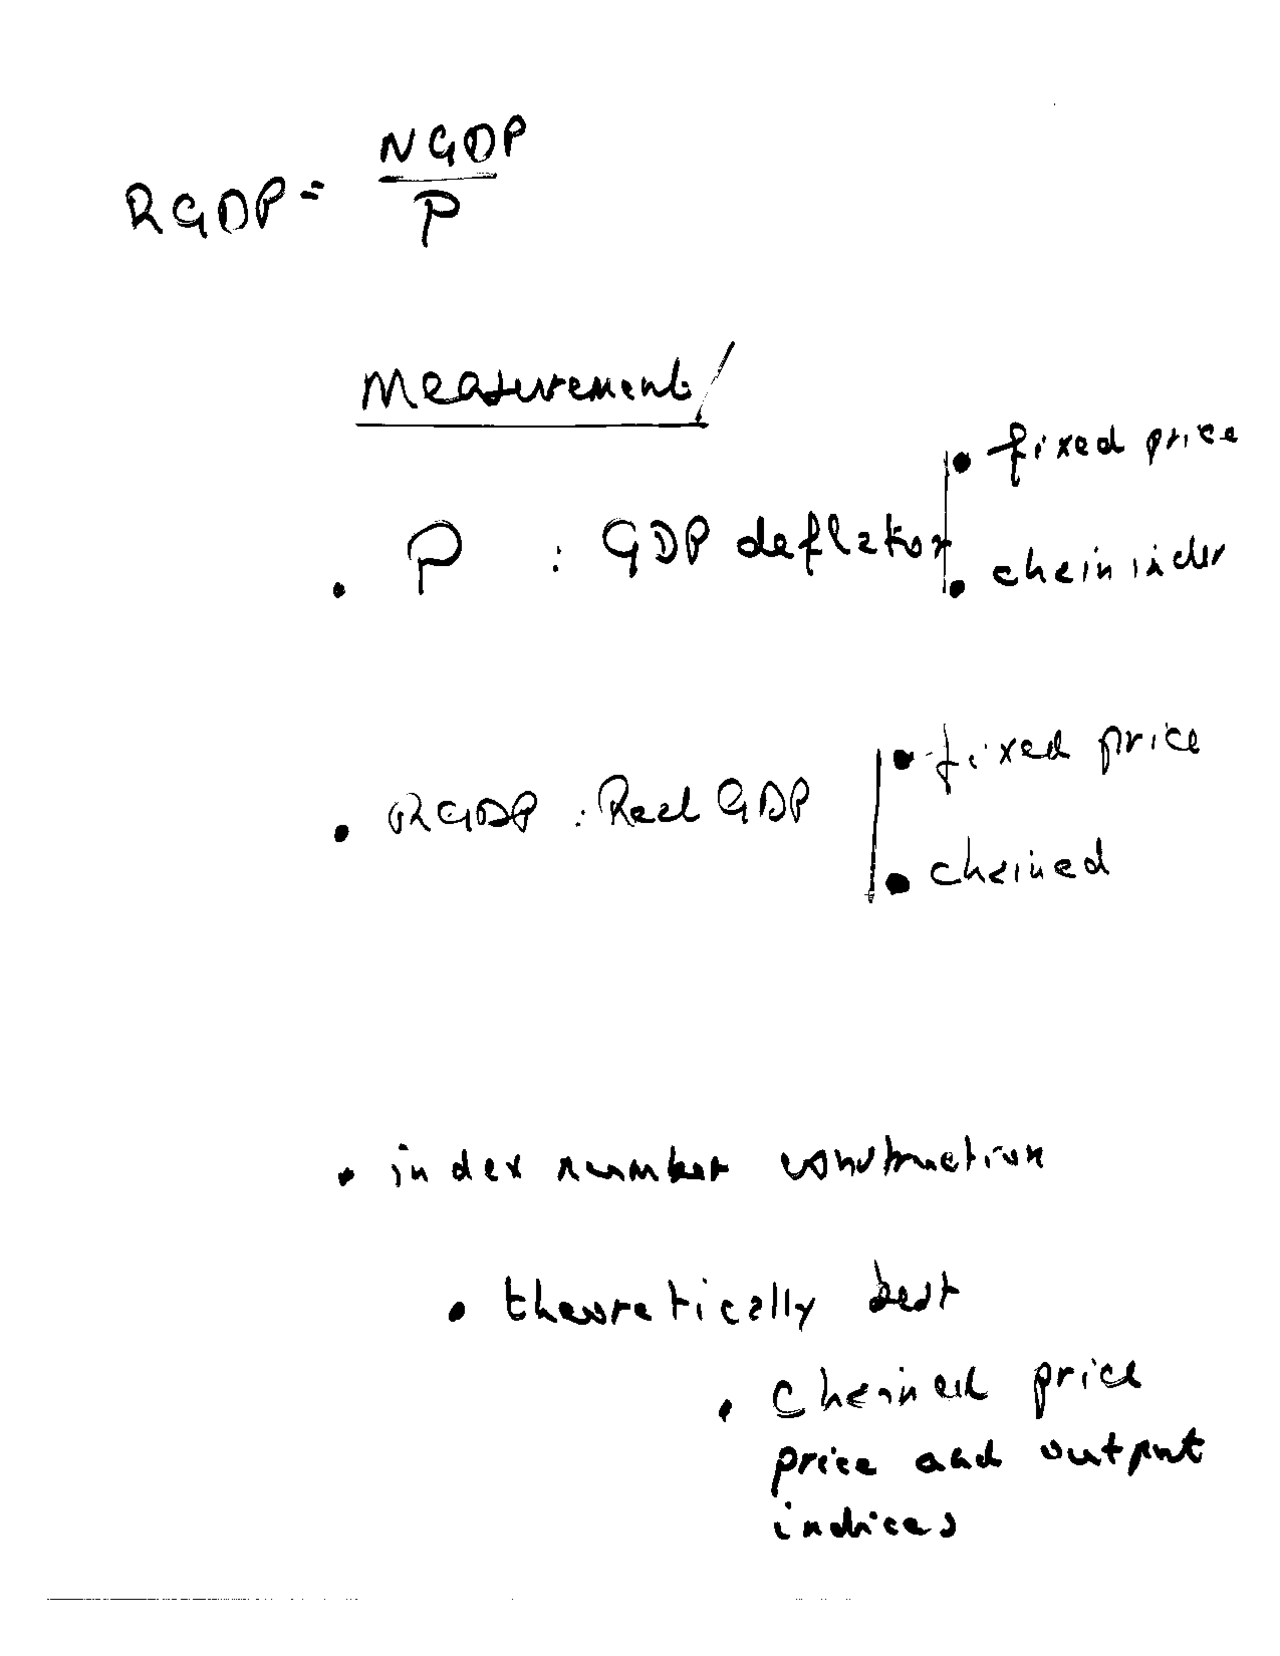 RGDP = NGDP / P
Measurement
• P : GDP deflator
• fixed price
• chain index
• RGDP : Real GDP
• fixed price
• chained
• index number construction
• theoretically best
• chained price
price and output
indices